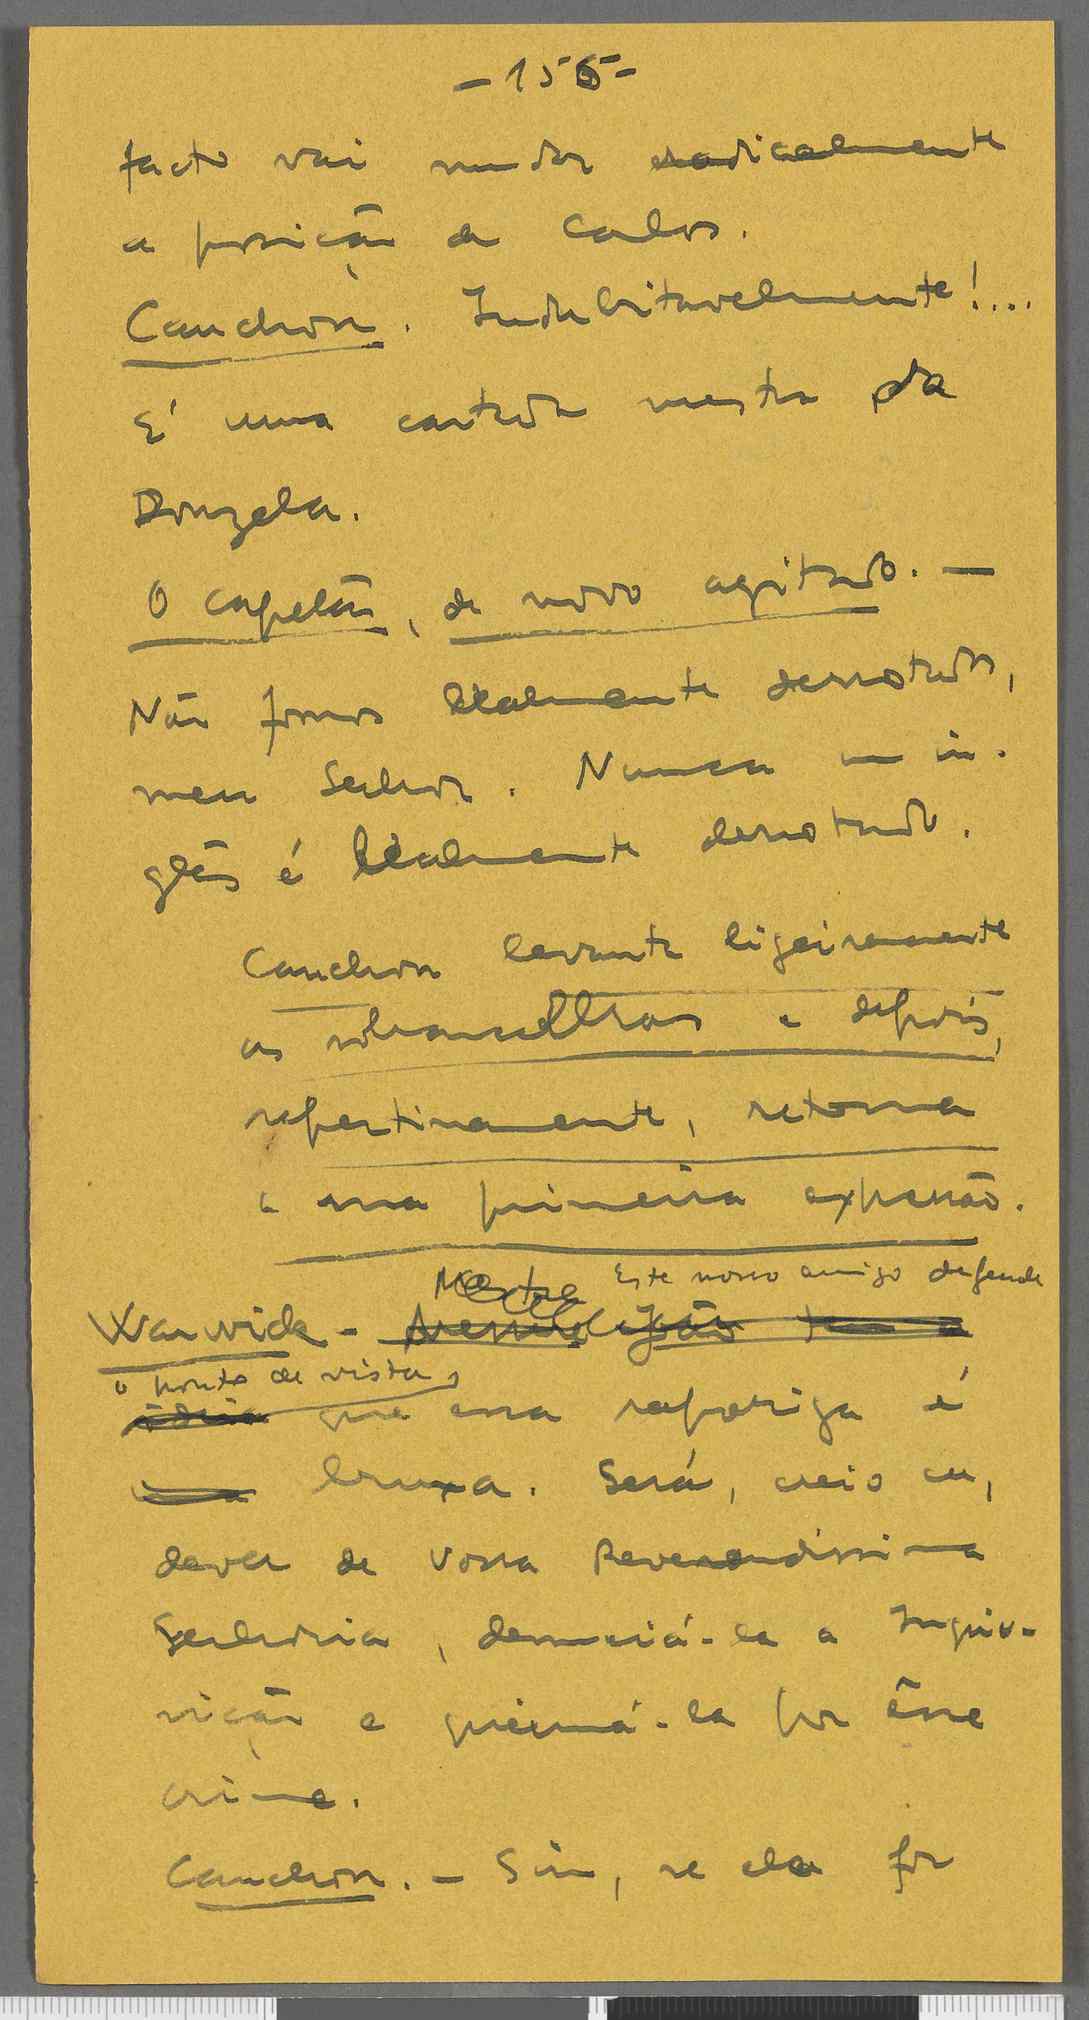 - 156 -
facto vai mudar radicalmente
a posição de Carlos.
Cauchon. Indubitavelmente!...
É uma cartada mestra da
Donzela.
O capelão, de novo agitado. -
Não fomos lealmente derrotados,
meu Senhor. Nunca um in-
glês é lealmente derrotado.
Cauchon levanta ligeiramente
as sobrancelhas e depois,
repentinamente, retoma
a sua primeira expressão.
Mestre Este nosso amigo defende
Warwick - João tem a
o ponto de vista,
ideia que essa rapariga é
uma bruxa. Será, creio eu,
dever de Vossa Reverendíssima
Senhoria, denunciá-la a Inqui-
sição e queimá-la por êsse
crime.
Cauchon. - Sim, se ela for